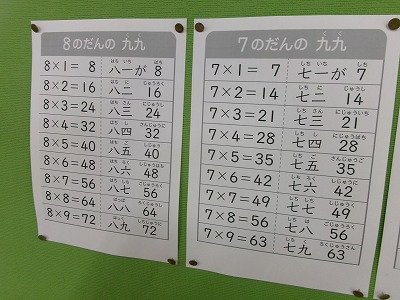 8のだんの 九九
8×1= 8 八一が 8
8×2=16 八二 16
8×3=24 八三 24
8×4=32 八四 32
8×5=40 八五 40
8×6=48 八六 48
8×7=56 八七 56
8×8=64 八八 64
8×9=72 八九 72
7のだんの 九九
7×1= 7 七一が 7
7×2=14 七二 14
7×3=21 七三 21
7×4=28 七四 28
7×5=35 七五 35
7×6=42 七六 42
7×7=49 七七 49
7×8=56 七八 56
7×9=63 七九 63